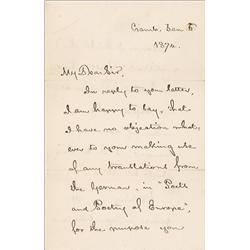 Camb. Jan 5
1874.
My Dear Sir,
In reply to your letter,
I am happy to say, that
I have no objection what-
ever to your making use
of any translations from
the German, in "Poets
and Poetry of Europe",
for the purpose you